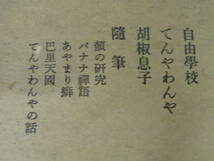 自由學校
てんやわんや
胡椒息子
隨筆
顏の研究
バナナ禪語
あやまり癖
巴里天國
てんやわんやの話